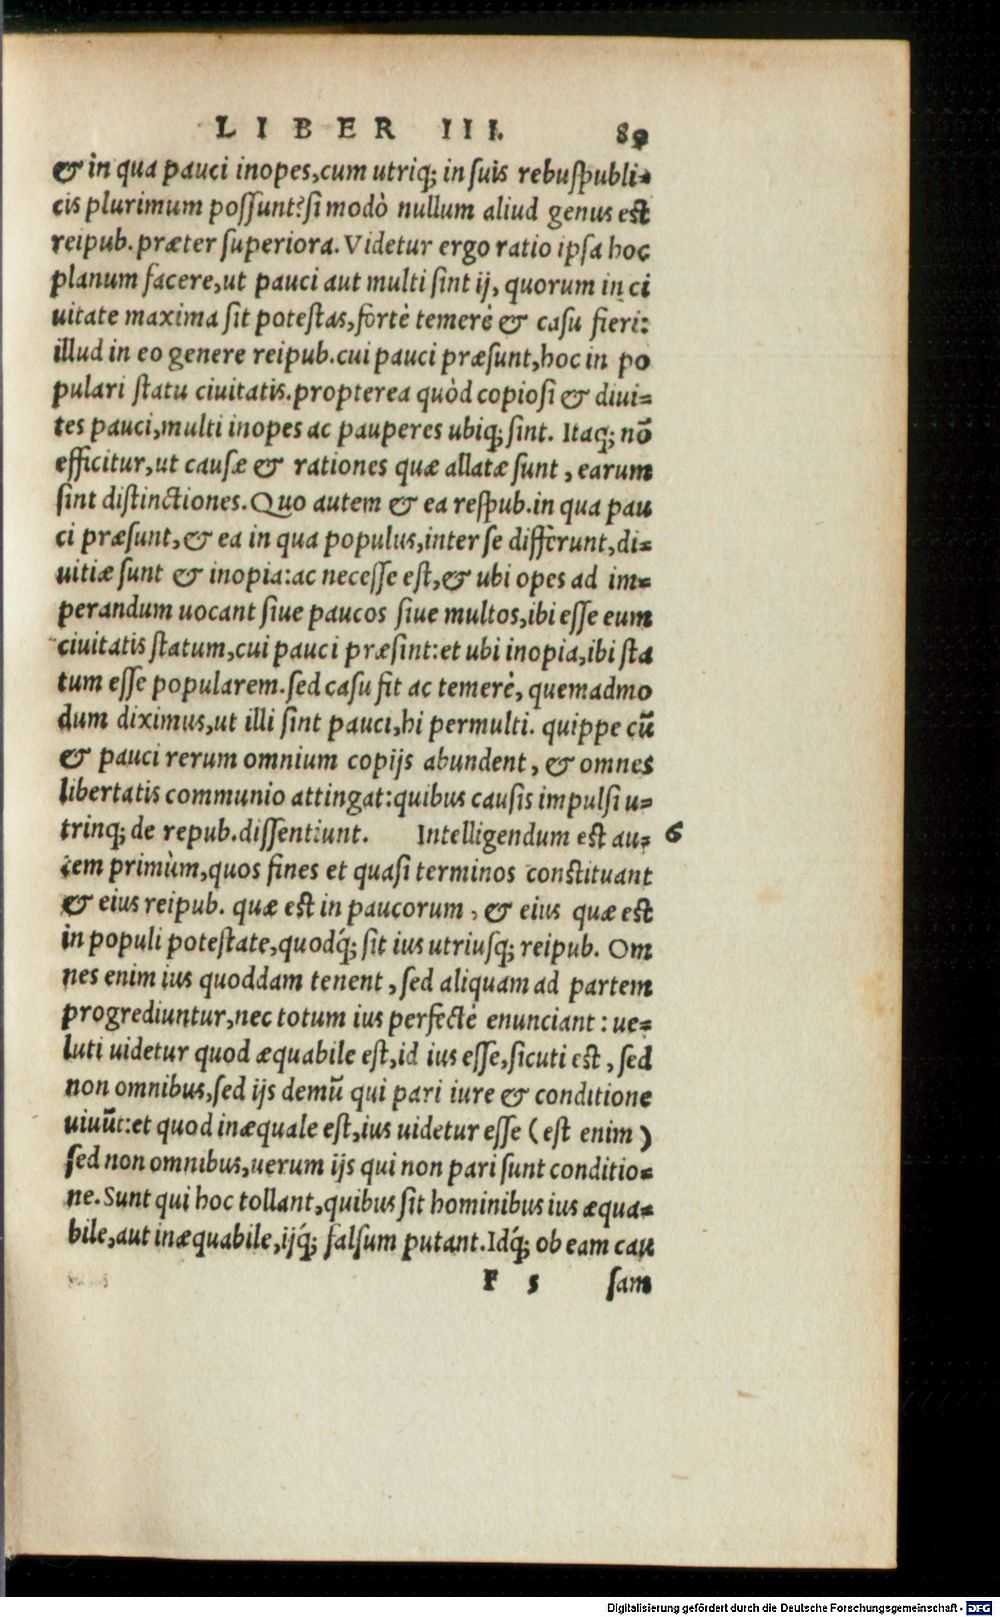 LIBER III. 89
& in qua pauci inopes,cum utriq; in ſuis rebuſpubli-
cis plurimum poſſunt?ſi modò nullum aliud genus eſt
reipub.præter ſuperiora.Videtur ergo ratio ipſa hoc
planum facere,ut pauci aut multi ſint ij, quorum in ci
uitate maxima ſit poteſtas,fortè temerè & caſu fieri:
illud in eo genere reipub.cui pauci præſunt,hoc in po
pulari ſtatu ciuitatis.propterea quòd copioſi & diui-
tes pauci,multi inopes ac pauperes ubiq; ſint. Itaq; nō
efficitur,ut cauſæ & rationes quæ allatæ ſunt, earum
ſint diſtinctiones.Quo autem & ea reſpub.in qua pau
ci præſunt,& ea in qua populus,inter ſe differunt,di-
uitiæ ſunt & inopia:ac neceſſe eſt,& ubi opes ad im-
perandum uocant ſiue paucos ſiue multos,ibi eſſe eum
ciuitatis ſtatum,cui pauci præſint:et ubi inopia,ibi ſta
tum eſſe popularem.ſed caſu fit ac temerè, quemadmo
dum diximus,ut illi ſint pauci,hi permulti. quippe cū
& pauci rerum omnium copijs abundent, & omnes
libertatis communio attingat:quibus cauſis impulſi u-
trinq; de repub.diſſentiunt. Intelligendum eſt au- 6
tem primùm,quos fines et quaſi terminos conſtituant
& eius reipub. quæ eſt in paucorum, & eius quæ eſt
in populi poteſtate,quodq́; ſit ius utriuſq; reipub. Om
nes enim ius quoddam tenent, ſed aliquam ad partem
progrediuntur,nec totum ius perfectè enunciant: ue-
luti uidetur quod æquabile eſt,id ius eſſe,ſicuti eſt, ſed
non omnibus,ſed ijs demū qui pari iure & conditione
uiuūt:et quod inæquale eſt,ius uidetur eſſe (eſt enim)
ſed non omnibus,uerum ijs qui non pari ſunt conditio-
ne.Sunt qui hoc tollant,quibus ſit hominibus ius æqua-
bile,aut inæquabile,ijq́; falſum putant.Idq́; ob eam cau
F 5 ſam
Digitalisierung gefördert durch die Deutsche Forschungsgemeinschaft - DFG